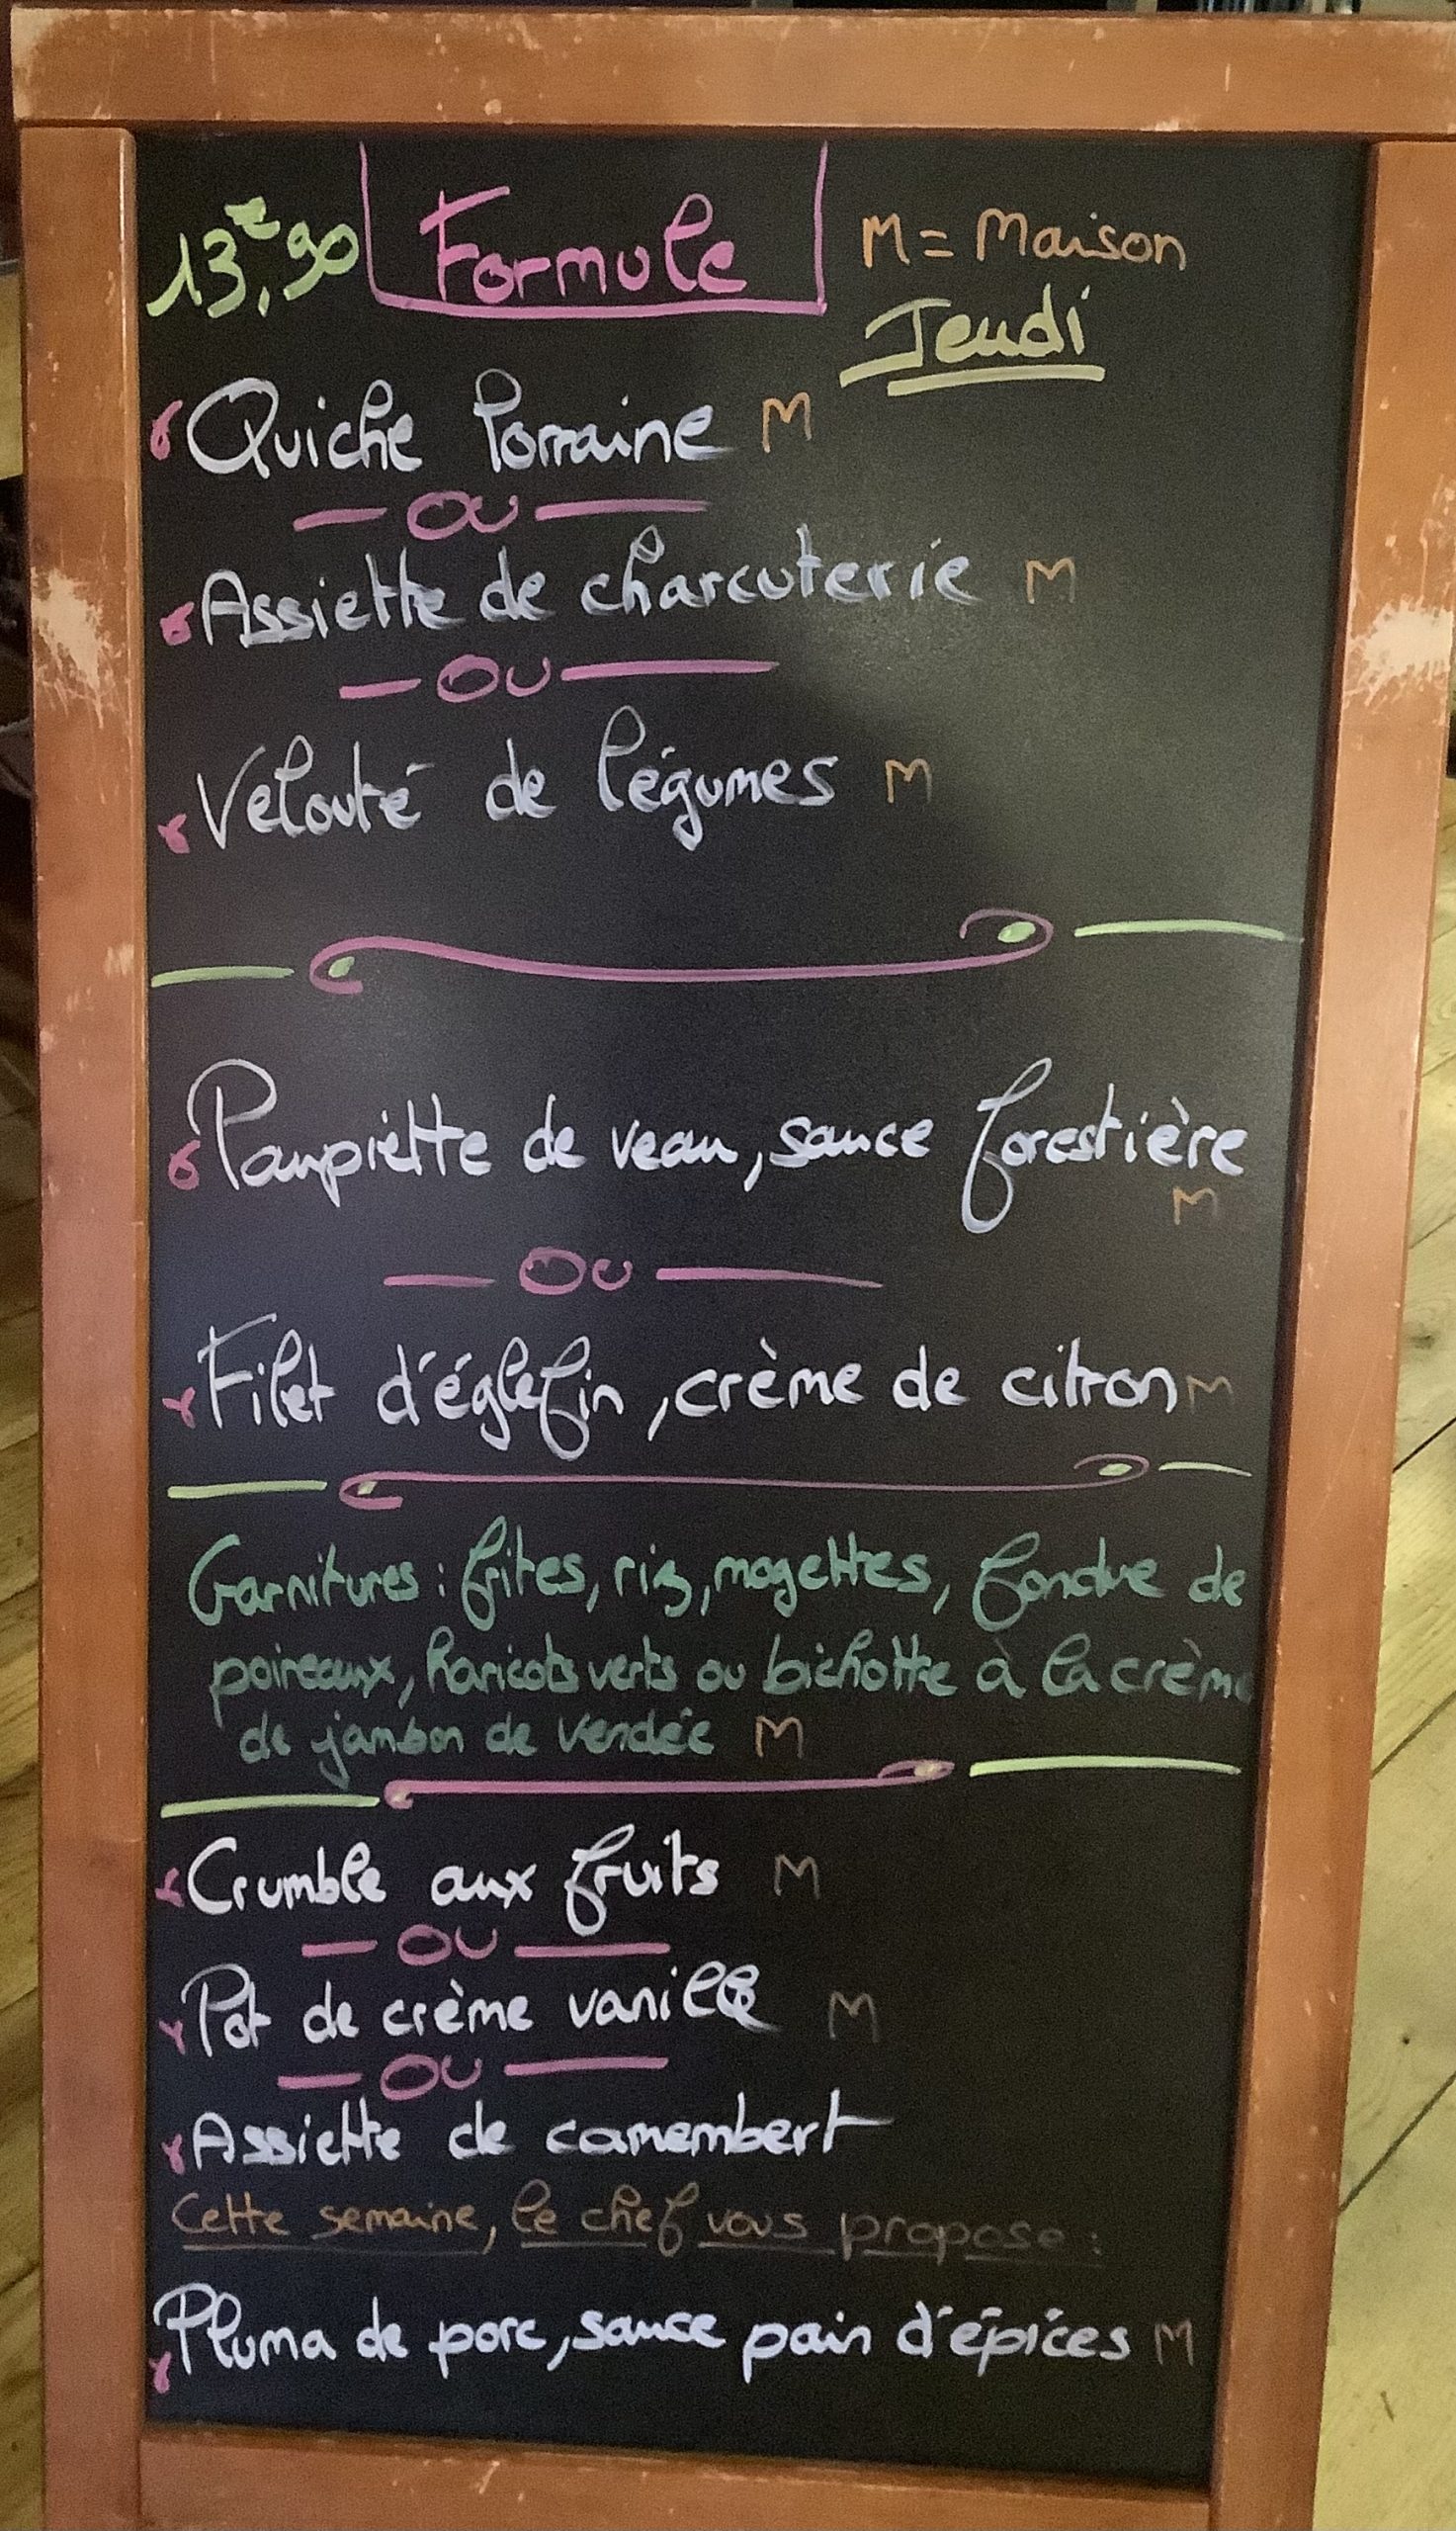 13€,90 Formule M = Maison
Jeudi
Quiche lorraine M
OU
Assiette de charcuterie M
OU
Velouté de légumes M
Paupiette de veau, sauce forestière
M
OU
Filet d'églefin, crème de citron M
Garnitures : frites, riz, mogettes, fondue de
poireaux, haricots verts ou bichotte à la crème
de jambon de vendée M
Crumble aux fruits M
OU
Pot de crème vanille M
OU
Assiette de camembert
Cette semaine, le chef vous propose :
Pluma de porc, sauce pain d'épices M